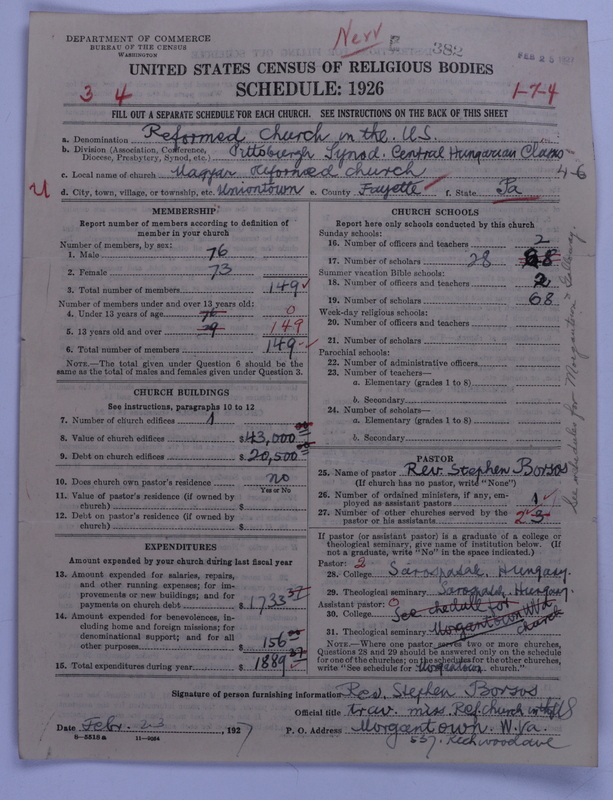 DEPARTMENT OF COMMERCE
BUREAU OF THE CENSUS
WASHINGTON
New
382
FEB 25 1927
UNITED STATES CENSUS OF RELIGIOUS BODIES
SCHEDULE: 1926
3 4
1-7-4
FILL OUT A SEPARATE SCHEDULE FOR EACH CHURCH. SEE INSTRUCTIONS ON THE BACK OF THIS SHEET
a. Denomination Reformed Church in the U.S.
b. Division (Association, Conference, Diocese, Presbytery, Synod, etc.) Pittsburgh Synod. Central Hungarian Classis
4-6
c. Local name of church Magyar Reformed Church
d. City, town, village, or township, etc. Uniontown e. County Fayette f. State Pa
MEMBERSHIP
Report number of members according to definition of member in your church
Number of members, by sex:
1. Male 76
2. Female 73
3. Total number of members 149
Number of members under and over 13 years old:
4. Under 13 years of age 76 0
5. 13 years old and over 39 149
6. Total number of members 149
NOTE.—The total given under Question 6 should be the same as the total of males and females given under Question 3.
CHURCH BUILDINGS
See instructions, paragraphs 10 to 12
7. Number of church edifices 1
8. Value of church edifices $43,000 00
9. Debt on church edifices $20,500 00
10. Does church own pastor's residence no
Yes or No
11. Value of pastor's residence (if owned by church) $
12. Debt on pastor's residence (if owned by church) $
EXPENDITURES
Amount expended by your church during last fiscal year
13. Amount expended for salaries, repairs, and other running expenses; for improvements or new buildings; and for payments on church debt $1733 37
14. Amount expended for benevolences, including home and foreign missions; for denominational support; and for all other purposes 156 00
15. Total expenditures during year $1889 37
CHURCH SCHOOLS
Report here only schools conducted by this church
Sunday schools:
16. Number of officers and teachers 2
17. Number of scholars 28
Summer vacation Bible schools:
18. Number of officers and teachers 2
19. Number of scholars 68
Week-day religious schools:
20. Number of officers and teachers
21. Number of scholars
Parochial schools:
22. Number of administrative officers
23. Number of teachers—
a. Elementary (grades 1 to 8)
b. Secondary
24. Number of scholars—
a. Elementary (grades 1 to 8)
b. Secondary
See schedules for Morgantown &
PASTOR
25. Name of pastor Rev. Stephen Borsos
(If church has no pastor, write "None")
26. Number of ordained ministers, if any, employed as assistant pastors 1
27. Number of other churches served by the pastor or his assistants 2 3
If pastor (or assistant pastor) is a graduate of a college or theological seminary, give name of institution below. (If not a graduate, write "No" in the space indicated.)
Pastor: 2
28. College Sárospatak, Hungary.
29. Theological seminary Sárospatak, Hungary.
Assistant pastor: 0
30. College See schedule for
31. Theological seminary Morgantown W.Va church
NOTE.—Where one pastor serves two or more churches, Questions 28 and 29 should be answered only on the schedule for one of the churches; on the schedules for the other churches, write "See schedule for Morgantown church."
Signature of person furnishing information Rev. Stephen Borsos
Official title trav. miss. Ref. church in the US
Date Febr. 23, 1927
P. O. Address Morgantown. W.Va.
8-5518 a 11-9084